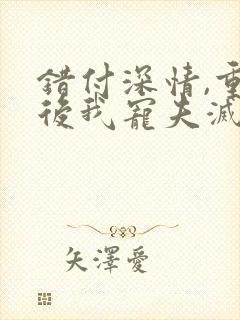 錯付深情,重
後我寵夫滅
矢澤愛